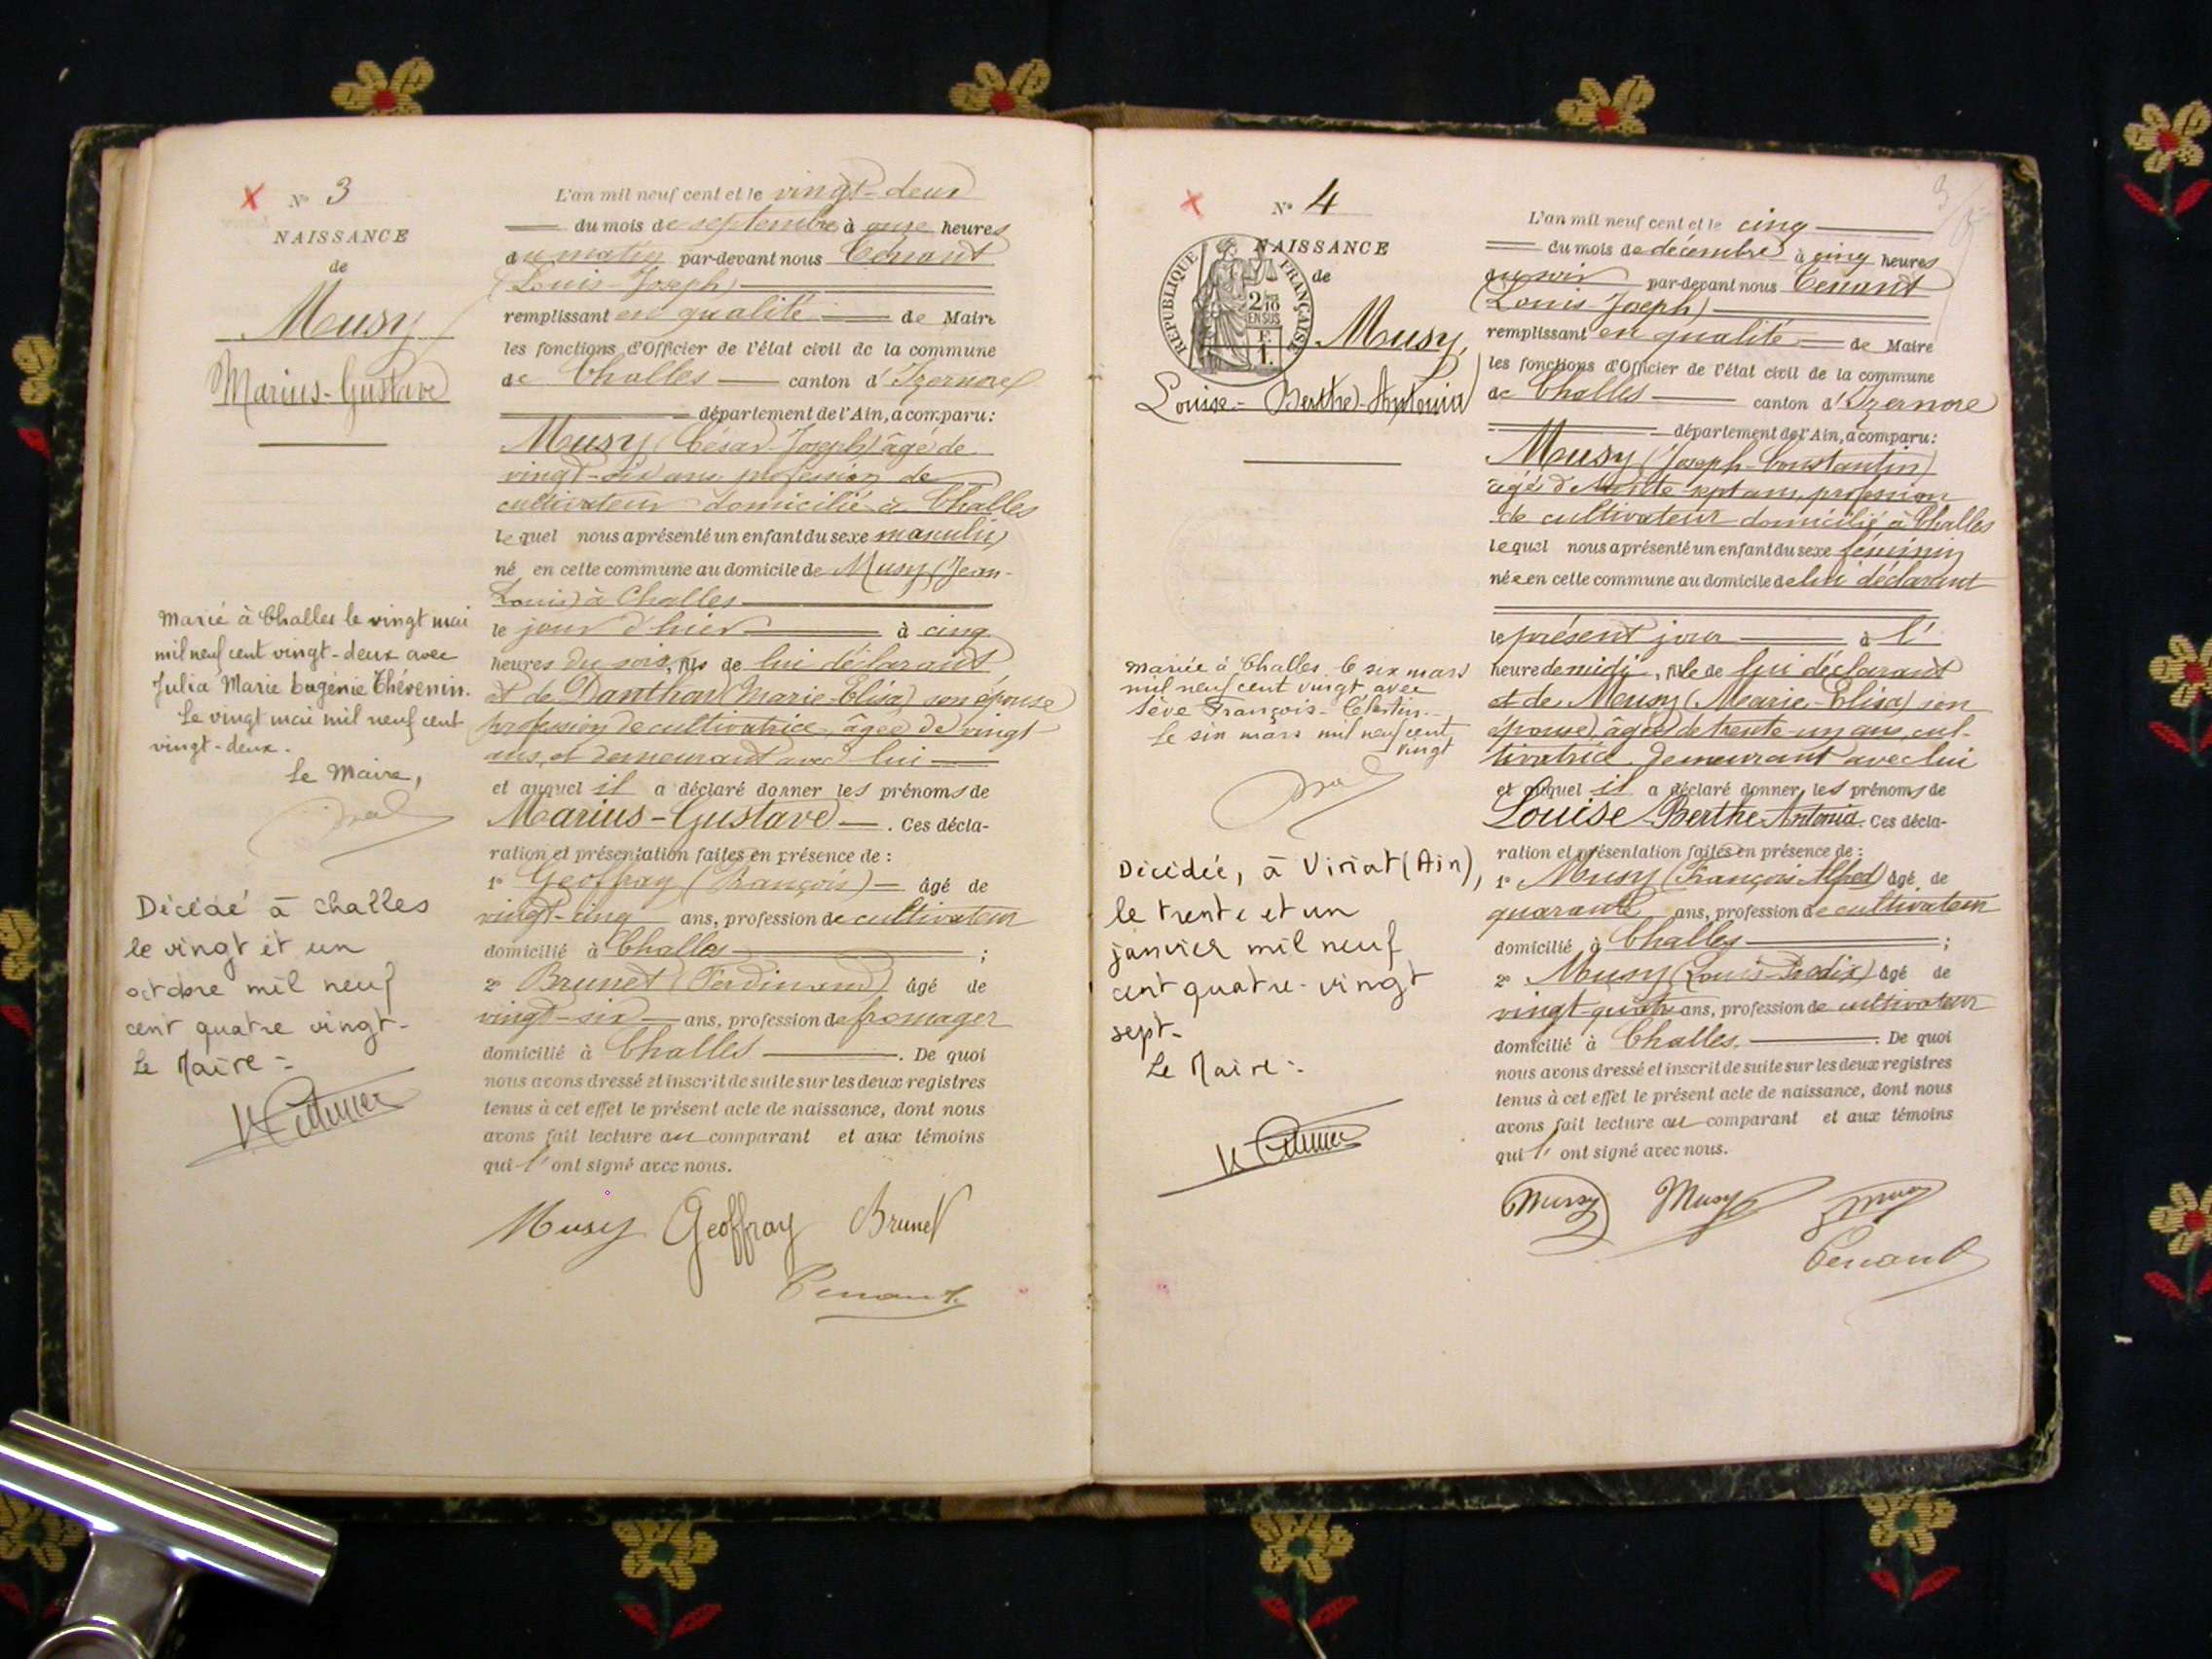 N° 3
NAISSANCE
de
Musy
Marius-Gustave
Marié à Challes le vingt mai
mil neuf cent vingt-deux avec
Julia Marie Eugénie Thévenin.
Le vingt mai mil neuf cent
vingt-deux.
Le Maire,
Décédé à Challes
le vingt et un
octobre mil neuf
cent quatre vingt-
Le Maire :
L'an mil neuf cent et le vingt-deux
du mois de septembre à onze heures
du matin par-devant nous Tenant
(Louis-Joseph)
remplissant en qualité de Maire
les fonctions d'Officier de l'état civil de la commune
de Challes canton d'Izernore
département de l'Ain, a comparu :
Musy (César-Joseph) âgé de
vingt-six ans profession de
cultivateur domicilié à Challes
lequel nous a présenté un enfant du sexe masculin
né en cette commune au domicile de Musy (Jean-
Louis) à Challes
le jour d'hier à cinq
heures du soir, fils de lui déclarant
et de Danthon (Marie-Elisa) son épouse
profession de cultivatrice, âgée de vingt
ans, et demeurant avec lui
et auquel il a déclaré donner les prénoms de
Marius-Gustave. Ces décla-
ration et présentation faites en présence de :
1° Geoffray (François) âgé de
vingt-cinq ans, profession de cultivateur
domicilié à Challes ;
2° Brunet (Ferdinand) âgé de
vingt-six ans, profession de fromager
domicilié à Challes. De quoi
nous avons dressé et inscrit de suite sur les deux registres
tenus à cet effet le présent acte de naissance, dont nous
avons fait lecture au comparant et aux témoins
qui l'ont signé avec nous.
Musy Geoffray Brunet
Tenant
N° 4
NAISSANCE
de
RÉPUBLIQUE FRANÇAISE
2/10
EN SUS
F.
1.
Musy
Louise-Berthe-Antonia
Mariée à Challes le six mars
mil neuf cent vingt avec
Sève François-Célestin.
Le six mars mil neuf cent
vingt
Décédée, à Viriat (Ain),
le trente et un
janvier mil neuf
cent quatre-vingt
sept-
Le Maire :
L'an mil neuf cent et le cinq
du mois de décembre à cinq heures
du soir par-devant nous Tenant
(Louis-Joseph)
remplissant en qualité de Maire
les fonctions d'Officier de l'état civil de la commune
de Challes canton d'Izernore
département de l'Ain, a comparu :
Musy (Joseph-Constantin)
âgé de trente-sept ans, profession
de cultivateur domicilié à Challes
lequel nous a présenté un enfant du sexe féminin
née en cette commune au domicile de lui déclarant
le présent jour à l'
heure de midi, fille de lui déclarant
et de Musy (Marie-Elisa) son
épouse, âgée de trente-un ans, cul-
tivatrice demeurant avec lui
et auquel il a déclaré donner les prénoms de
Louise-Berthe-Antonia. Ces décla-
ration et présentation faites en présence de :
1° Musy (François Alfred) âgé de
quarante ans, profession de cultivateur
domicilié à Challes ;
2° Musy (Louis) âgé de
vingt-quatre ans, profession de cultivateur
domicilié à Challes. De quoi
nous avons dressé et inscrit de suite sur les deux registres
tenus à cet effet le présent acte de naissance, dont nous
avons fait lecture au comparant et aux témoins
qui l'ont signé avec nous.
Musy Musy Musy
Tenant